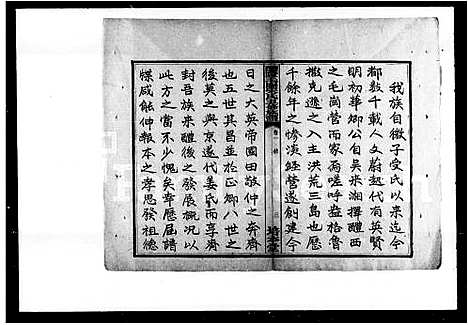 我族自微子受氏以來迄今
都數千載人文蔚起代有英賢
明初華卿公自吳來湘擇醴西
之毛崗營而家焉嗟呼益格魯
撒克遜之入主洪荒三島也歷
千餘年之慘澹經營遂創建今
日之大英帝國田敬仲之奔齊
也五世其昌並於正卿八世之
後莫之與京遂代姜氏而享齊
封吾族來醴後之發展概況以
此方之當不少愧矣尊歷屆譜
牒咸能仲報本之孝思發祖德
卷一
三